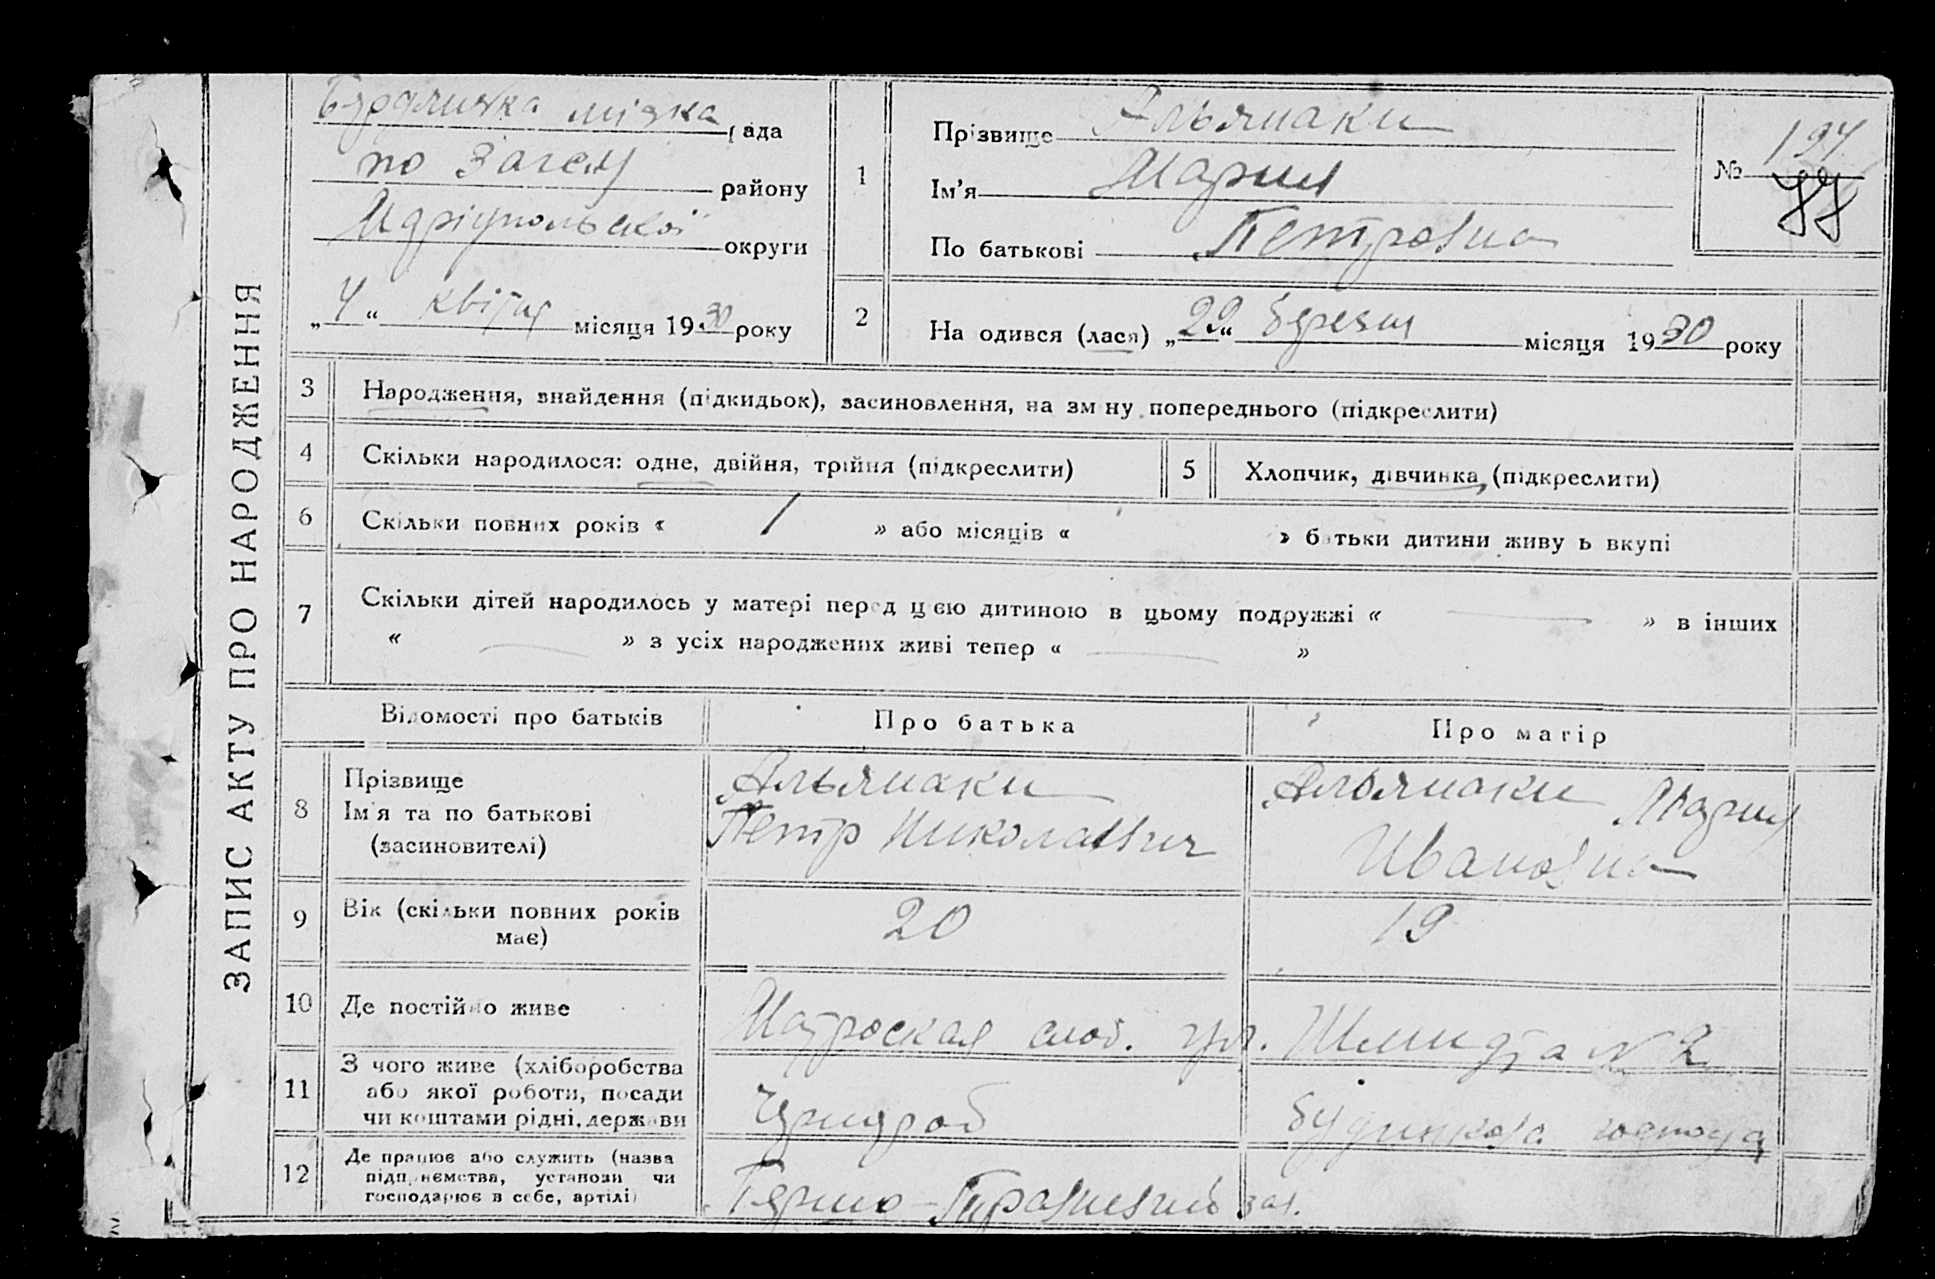 ЗАПИС АКТУ ПРО НАРОДЖЕННЯ
Бердянська міська рада
по Загсу району
Маріупольскої округи
„ 4 “ квітня місяця 1930 року
1
Прізвище Альянаки
Ім’я Мария
По батькові Петровна
№ 194
77
2
На одився (лася) „ 22 “ березня місяця 1930 року
3
Народження, знайдення (підкидьок), засиновлення, на зм ну попереднього (підкреслити)
4
Скільки народилося: одне, двійня, трійня (підкреслити)
5
Хлопчик, дівчинка, (підкреслити)
6
Скільки повних років « 1 » або місяців « » батьки дитини живу ь вкупі
7
Скільки дітей народилось у матері перед цією дитиною в цьому подружжі « — » в інших
« — » з усіх народжених живі тепер « — »
Відомості про батьків
Про батька
Про матір
8
Прізвище
Ім’я та по батькові
(засиновителі)
Альянаки
Петр Николаевич
Альянаки Мария
Ивановна
9
Вік (скільки повних років
має)
20
19
10
Де постійно живе
Матроская слоб. ул. Шмидта № 2
11
З чого живе (хліборобства
або якої роботи, посади
чи коштами рідні, держави
Чорнороб
будинкова господа
12
Де працює або служить (назва
підприємства, установи чи
господарює в себе, артілі)
Першо-Травневий зав.